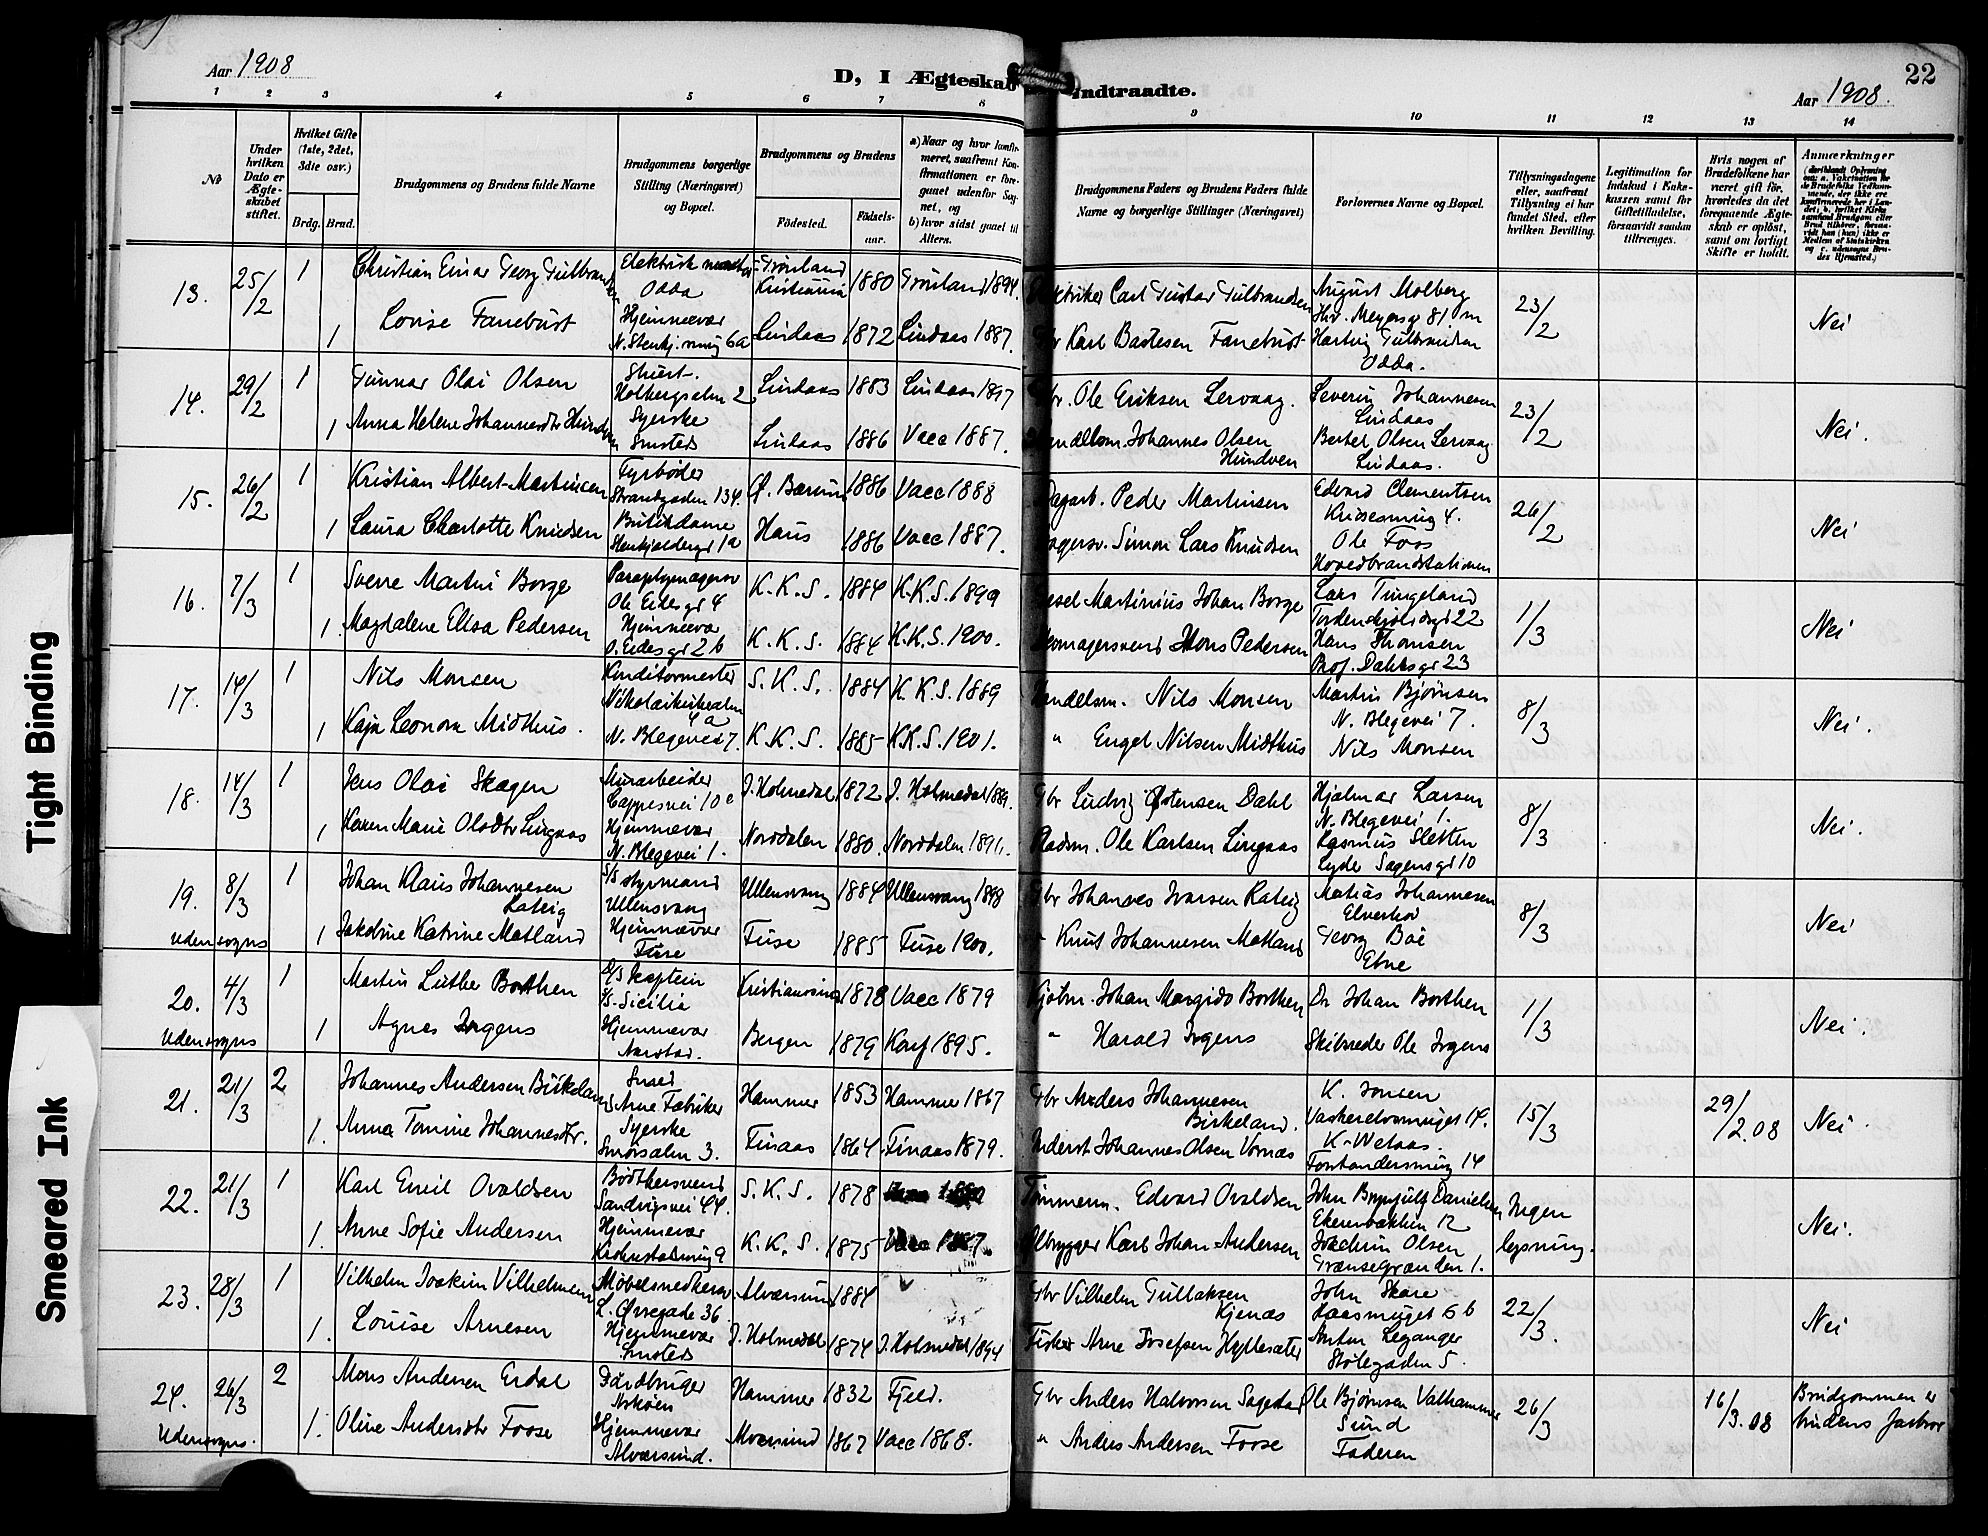 Aar 1908
D, I Ægteskab Indtraadte.
Aar 1908.
22
1 2 3 4 5 6 7 8 9 10 11 12 13 14
No
Under hvilken Dato er Ægteskabet stiftet.
Hvilket Gifte (1ste, 2det, 3die osv.)
Brdg. Brud.
Brudgommens og Brudens fulde Navne
Brudgommens borgerlige Stilling (Næringsvei) og Bopæl.
Brudgommens og Brudens
Fødested.
Fødselsaar.
a) Naar og hvor konfirmeret, saafremt Konfirmationen er foregaaet udenfor Sognet, og
b) hvor sidst gaaet til Alters.
Brudgommens Faders og Brudens Faders fulde Navne og borgerlige Stillinger (Næringsvei)
Forlovernes Navne og Bopæl.
Tillysningsdagene eller, saafremt Tillysning ei har fundet Sted, efter hvilken Bevilling.
Legitimation for Indskud i Enkekassen samt for Giftetilladelse, forsaavidt saadan tiltrænges.
Hvis nogen af Brudefolkene har været gift før, hvorledes da det foregaaende Ægteskab er opløst, samt om lovligt Skifte er holdt.
Anmærkninger
13. 25/2 1 Christian Einar Georg Gulbrandsen
Odda
Grønland Kristiania 1880 Grønland 1894.
Carl Gustav Gulbrandsen
August Molberg
23/2
Nei
1 Lovise Fanebust
Hjemmevær
Lindaas 1872 Lindaas 1887.
Karl Bastesen Fanebust
Hartvig Gulbrandsen
Odda.
14. 29/2 1 Gunnar Olai Olsen
Holbergsalm 2
Lindaas 1883 Lindaas 1897
Ole Eriksen Lervaag.
Severin Johannesen
Lindaas
23/2
Nei.
1 Anna Helene Johannesdtr Hundven
Syerske
Smsteds
Lindaas 1886 Vacc 1887.
Johannes Olsen Hundven
Olsen Lervaag
Lindaas.
15. 26/2 1 Kristian Albert Martinsen
Fyrbøder
Strandgaden 134.
Ø. Bærum 1886 Vacc 1888
Peder Martinsen
Edvard Clementsen
26/2
Nei
1 Laura Charlotte Knudsen
Butikdame
Haus 1886 Vacc 1887.
Simon Lars Knudsen
Ole Foss
Hovedbrandstationen
16. 7/3 1 Sverre Martin Borge
Ole Eides gt 4
K. K. S. 1884 K. K. S. 1899
Martinius Johan Borge
Lars Tungeland
Tordenskjoldsgt 22
1/3
Nei
1. Magdalene Elisa Pedersen
Hjemmevær
O. Eides gt 2 b
K. K. S. 1884 K. K. S. 1900.
Hans Pedersen
Hans Thomsen
Prof. Dahlsgt 23
17. 14/3 1 Nils Monsen
Konditormester
Nikolaikirkealm
4 a
S. K. S. 1884 K. K. S. 1889
Handelsm. Nils Monsen
Martin Bjørnsen
N. Blegevei 7.
8/3
Nei.
1 Kaja Leonora Midthus.
N. Blegevei 7.
K. K. S. 1885 K. K. S. 1901.
" Engel Nilsen Midthus
Nils Monsen
18. 14/3 1 Jens Olai Skagen
Murarbeider
I. Holmedal 1872 I. Holmedal 1889.
Gbr Ludvig Østensen Dahl
Hjalmar Larsen
N. Blegevei 1.
8/3
Nei.
1 Karen Marie Olsdtr Lingaas
Hjemmevær
N. Blegevei 1.
Norddalen 1880.
Ole Karlsen Lingaas
Rasmus Sletten
Lyder Sagens gt 10
19. 8/3 1 Johan Klaus Johannesen
S/S styrmand
Ullensvang
Ullensvang 1884 Ullensvang 1898
Gbr Johannes Ivarsen
Matias Johannesen
8/3
Nei
udensogns 1 Jakobine Katrine Matland
Hjemmevær
Fuse
Fuse 1885 Fuse 1900.
" Knut Johannesen Matland
Georg Bøe
Etne
20. 4/3 1 Martin Luther Borthen
S/S kaptein
S/S Sicilia
Kristianssund 1878 Vacc 1879
Kjøbm. Johan Margido Borthen
Dr Johan Borthen
1/3
Nei.
Udensogns 1 Agnes Irgens
Hjemmevær
Aarstad.
Bergen 1879 Konf 1895.
" Harald Irgens
Skibsreder Ole Irgens
21. 21/3 2 Johannes Andersen Birkeland
Arne Fabriker
Hammer 1853 Hammer 1867
Gbr Anders Johannesen Birkeland.
K. Jonsen
15/3
29/2.08
Nei.
1. Anna Tomine Johannesdtr.
Syerske
Smørsalm 3.
Finaas 1864 Finaas 1879.
Inderst Johannes Olsen Vornæs
Forstandersmug 14
22. 21/3 1 Karl Emil Ovaldsen
Bødkersvend
Sandvigsvei 44.
S. K. S. 1878
Tømmerm. Edvard Ovaldsen
John Brynjulf Danielsen
Ekrenbakken 12
Ingen
lysning.
Nei.
1. Anne Sofie Andersen
Hjemmevær
K. K. S. 1875
Ølbrygger Karl Johan Andersen
Joachim Olsen
Grænsegrænden 1.
23. 28/3 1 Vilhelm Joakim Vilhelmsen
L. Øvregade 36
Alversund 1884
Gbr Vilhelm Gullaksen Kjenæs
John Skare
22/3.
Nei
1. Louise Arnesen
Hjemmevær
Smsteds
I. Holmedal 1874 I. Holmedal 1894
Fisker Arne Josefsen Hyllesæter
Anton Leganger
Stølegaden 5.
24. 26/3 2 Mons Andersen Erdal
Gaardbruger
Askøen
Hammer 1832 Fjeld.
Gbr Anders Halvorsen
Ole Bjørnsen Valhammer
Sund
26/3
16/3.08
Brudgommen er brudens farbror
Udensogns. 1. Oline Andersdtr Fosse
Hjemmevær
Alversund.
Alversund 1867 Vacc 1868.
" Anders Andersen Fosse
Faderen
Tight Binding
Smeared Ink